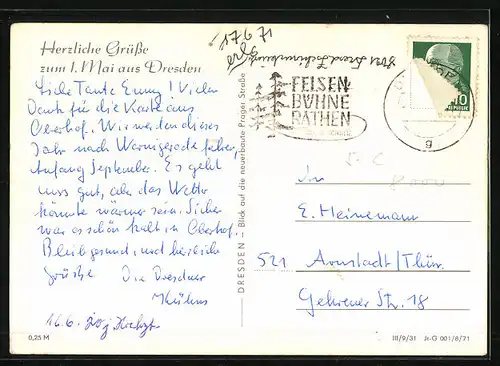 Herzliche Grüße
zum 1. Mai aus Dresden
Liebe Tante Emmy! Vielen
Dank für die Karte aus
Oberhof. Wir werden dieses
Jahr nach Wernigerode fahren,
Anfang September. Es geht
uns gut, aber das Wetter
könnte wärmer sein. Sicher
war es schön kalt in Oberhof.
Bleib gesund, und herzliche
Grüße Die Dresdner
Kühns
16.6.
0,25 M
DRESDEN – Blick auf die neuerbaute Prager Straße
17 6 71
FELSEN
BÜHNE
RATHEN
10
g
5-C
8000
An
E. Heinemann
521 Arnstadt/Thür.
Gehrener Str. 18
III/9/31 Jt-G 001/8/71